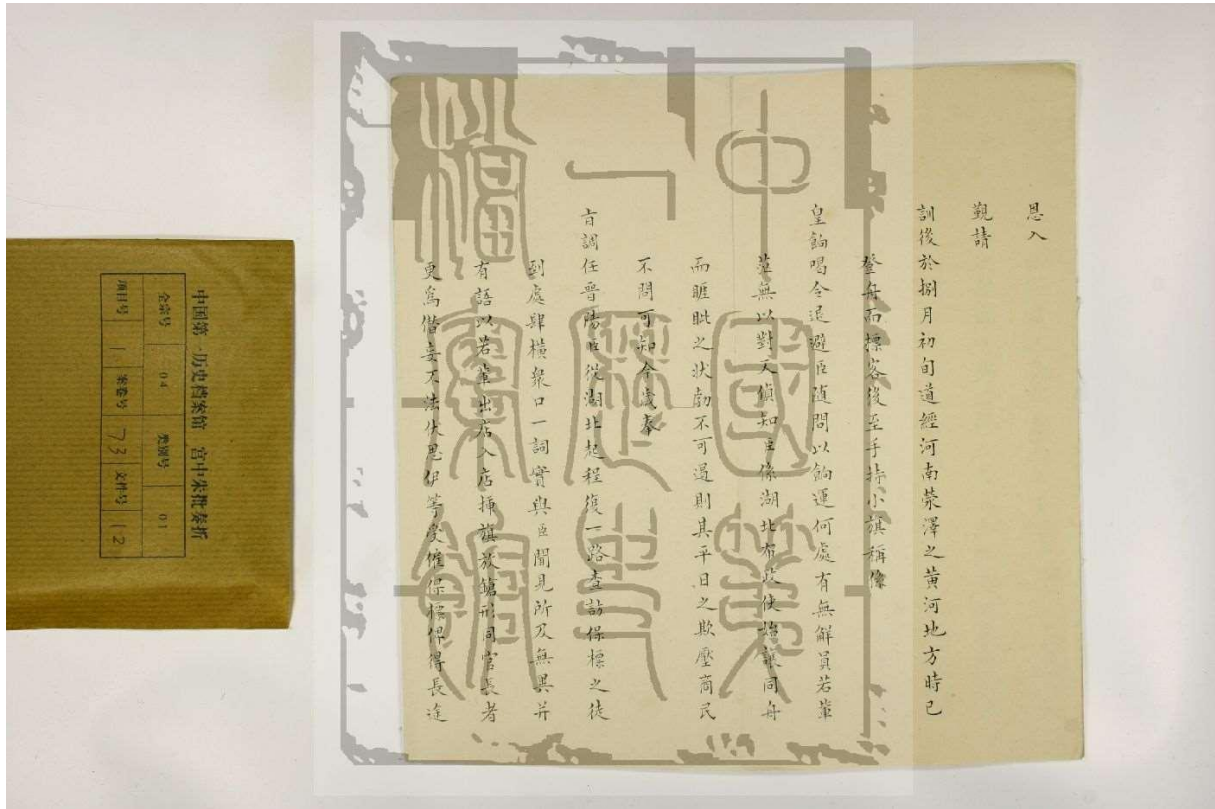 恩入
覲請
訓後於捌月初旬道經河南滎澤之黃河地方時已
登舟而摽客後至手持小旗稱係
皇餉喝令退避臣隨問以餉運何處有無解員若輩
並無以對又偵知臣係湖北布政使始讓同舟
而睚眦之狀勃不可遏則其平日之欺壓商民
不問可知今歲奉
旨調任晉陽臣從湖北起程復一路查訪保摽之徒
到處肆橫衆口一詞實與臣聞見所及無異并
有語以若輩出店入店揷旗放鎗形同官長者
更爲僭妄不法伏思伊等受僱保摽俾得長途
中国第一历史档案馆 宫中朱批奏折
全宗号 04 类别号 01
项目号 1 案卷号 73 文件号 12
中國第一歷史檔案館